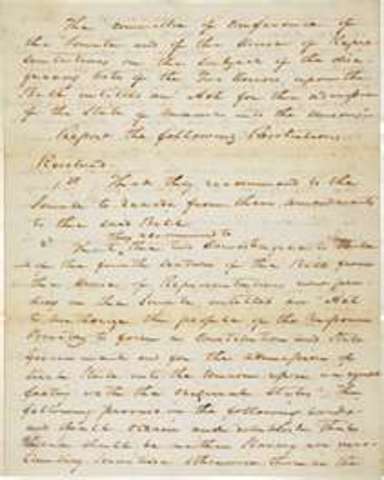 The committee of conference of
the Senate and of the House of Repre-
sentatives on the subject of the disa-
greeing votes of the Two Houses upon the
Bill entitled an Act for the admission
of the State of Maine into the Union
Report the following Resolution.
Resolved.
1st That they recommend to the
Senate to recede from their amendments
to the said Bill
2 That they recommend to the Two Houses to
in the fourth section of the Bill from
the House of Representatives now pen-
ding in the Senate entitled an Act
to authorize the people of the Missouri
to form a Constitution and State
Government and for the admission of
such State into the Union upon an equal
footing with the original States" the
following proviso in the following words
and shall
there shall be neither Slavery nor invol-
untary servitude otherwise than in the